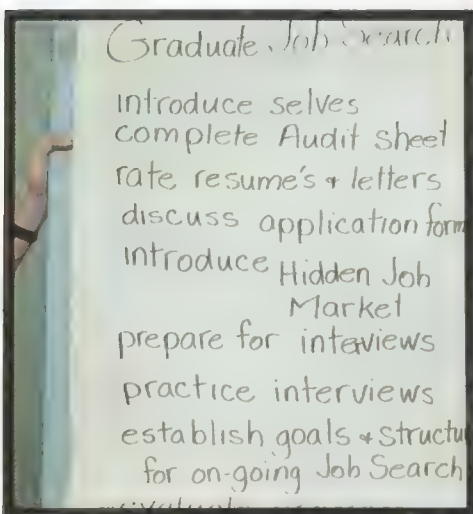 Graduate Job Search
introduce selves
complete Audit sheet
rate resume's & letters
discuss application form
introduce Hidden Job
Market
prepare for interviews
practice interviews
establish goals & structu
for on-going Job Search